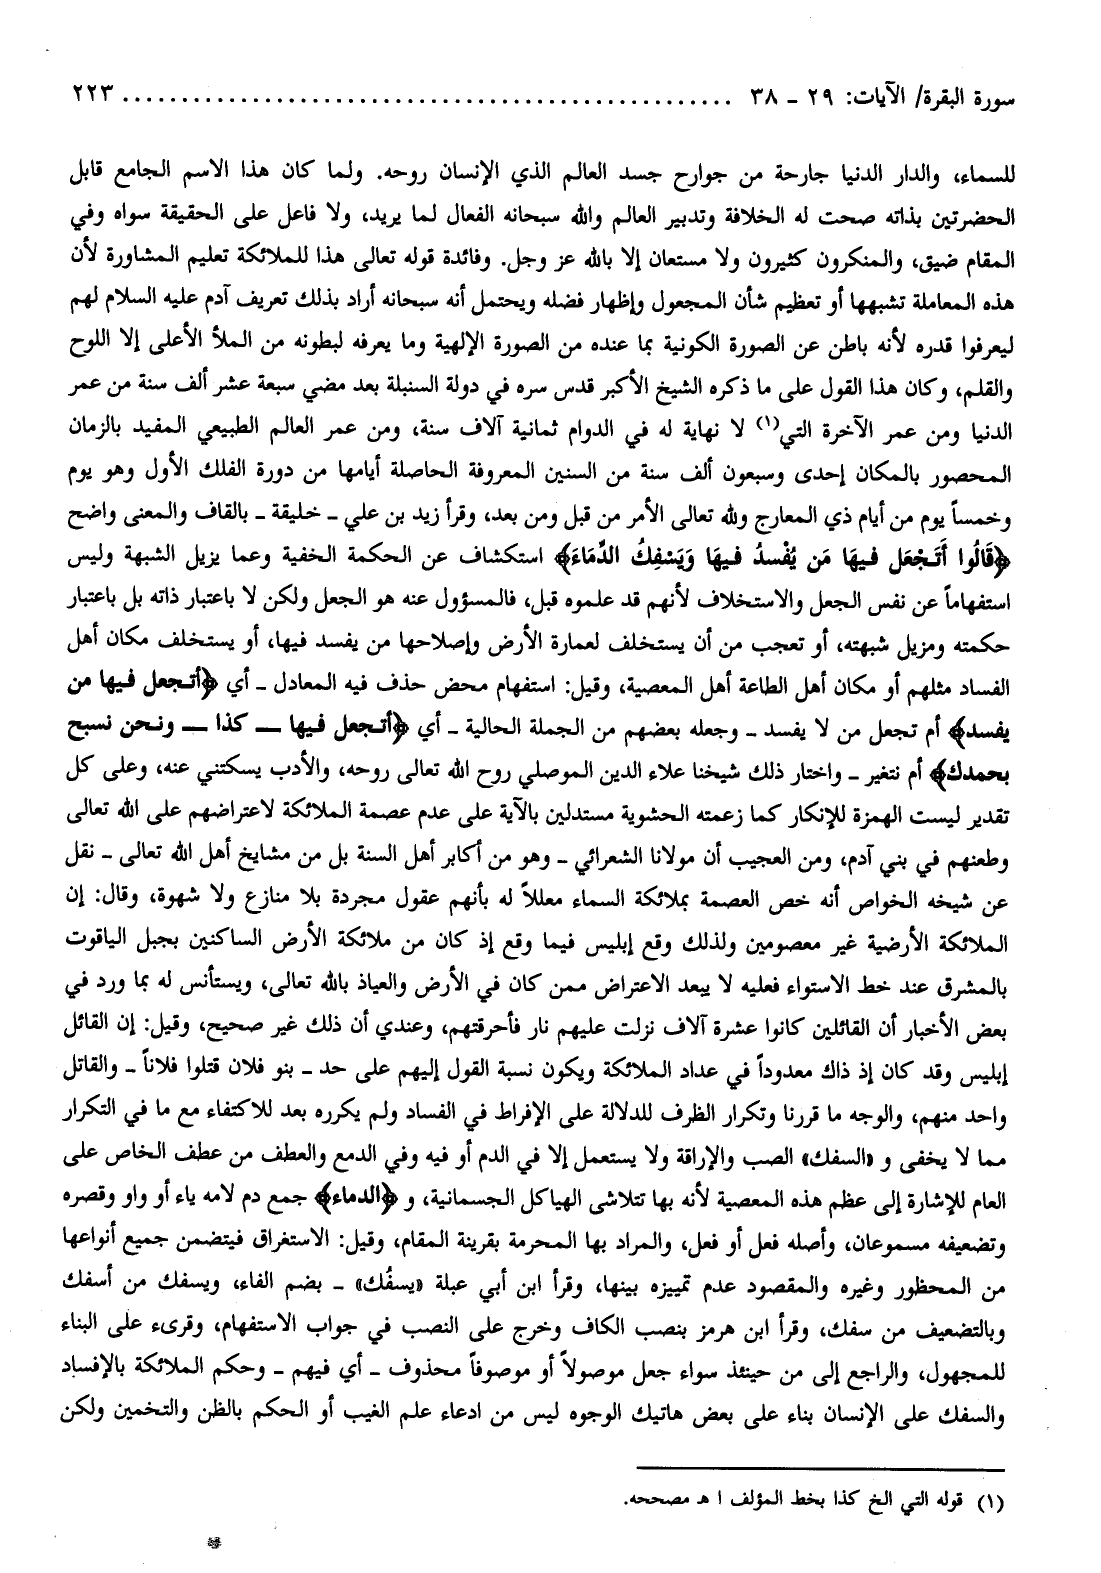 سورة البقرة/ الآيات: ٢٩ - ٣٨ ................................................. ٢٢٣
للسماء، والدار الدنيا جارحة من جوارح جسد العالم الذي الإنسان روحه. ولما كان هذا الاسم الجامع قابل
الحضرتين بذاته صحت له الخلافة وتدبير العالم والله سبحانه الفعال لما يريد، ولا فاعل على الحقيقة سواه وفي
المقام ضيق، والمنكرون كثيرون ولا مستعان إلا بالله عز وجل. وفائدة قوله تعالى هذا للملائكة تعليم المشاورة لأن
هذه المعاملة تشبهها أو تعظيم شأن المجعول وإظهار فضله ويحتمل أنه سبحانه أراد بذلك تعريف آدم عليه السلام لهم
ليعرفوا قدره لأنه باطن عن الصورة الكونية بما عنده من الصورة الإلهية وما يعرفه لبطونه من الملأ الأعلى إلا اللوح
والقلم، وكان هذا القول على ما ذكره الشيخ الأكبر قدس سره في دولة السنبلة بعد مضي سبعة عشر ألف سنة من عمر
الدنيا ومن عمر الآخرة التي(١) لا نهاية له في الدوام ثمانية آلاف سنة، ومن عمر العالم الطبيعي المفيد بالزمان
المحصور بالمكان إحدى وسبعون ألف سنة من السنين المعروفة الحاصلة أيامها من دورة الفلك الأول وهو يوم
وخمساً يوم من أيام ذي المعارج ولله تعالى الأمر من قبل ومن بعد، وقرأ زيد بن علي - خليقة - بالقاف والمعنى واضح
﴿قَالُوا أَتَجْعَل فيهَا مَن يُفْسدُ فيهَا وَيَسْفِكُ الدِّمَاءَ﴾ استكشاف عن الحكمة الخفية وعما يزيل الشبهة وليس
استفهاماً عن نفس الجعل والاستخلاف لأنهم قد علموه قبل، فالمسؤول عنه هو الجعل ولكن لا باعتبار ذاته بل باعتبار
حكمته ومزيل شبهته، أو تعجب من أن يستخلف لعمارة الأرض وإصلاحها من يفسد فيها، أو يستخلف مكان أهل
الفساد مثلهم أو مكان أهل الطاعة أهل المعصية، وقيل: استفهام محض حذف فيه المعادل - أي ﴿أتجعل فيها من
يفسد﴾ أم تجعل من لا يفسد - وجعله بعضهم من الجملة الحالية - أي ﴿أتجعل فيها — كذا — ونحن نسبح
بحمدك﴾ أم نتغير - واختار ذلك شيخنا علاء الدين الموصلي روح الله تعالى روحه، والأدب يسكتني عنه، وعلى كل
تقدير ليست الهمزة للإنكار كما زعمته الحشوية مستدلين بالآية على عدم عصمة الملائكة لاعتراضهم على الله تعالى
وطعنهم في بني آدم، ومن العجيب أن مولانا الشعرائي - وهو من أكابر أهل السنة بل من مشايخ أهل الله تعالى - نقل
عن شيخه الخواص أنه خص العصمة بملائكة السماء معللاً له بأنهم عقول مجردة بلا منازع ولا شهوة، وقال: إن
الملائكة الأرضية غير معصومين ولذلك وقع إبليس فيما وقع إذ كان من ملائكة الأرض الساكنين بجبل الياقوت
بالمشرق عند خط الاستواء فعليه لا يبعد الاعتراض ممن كان في الأرض والعياذ بالله تعالى، ويستأنس له بما ورد في
بعض الأخبار أن القائلين كانوا عشرة آلاف نزلت عليهم نار فأحرقتهم، وعندي أن ذلك غير صحيح، وقيل: إن القائل
إبليس وقد كان إذ ذاك معدوداً في عداد الملائكة ويكون نسبة القول إليهم على حد - بنو فلان قتلوا فلاناً - والقاتل
واحد منهم، والوجه ما قررنا وتكرار الظرف للدلالة على الإفراط في الفساد ولم يكرره بعد للاكتفاء مع ما في التكرار
مما لا يخفى و «السفك» الصب والإراقة ولا يستعمل إلا في الدم أو فيه وفي الدمع والعطف من عطف الخاص على
العام للإشارة إلى عظم هذه المعصية لأنه بها تتلاشى الهياكل الجسمانية، و ﴿الدماء﴾ جمع دم لامه ياء أو واو وقصره
وتضعيفه مسموعان، وأصله فعل أو فعل، والمراد بها المحرمة بقرينة المقام، وقيل: الاستغراق فيتضمن جميع أنواعها
من المحظور وغيره والمقصود عدم تمييزه بينها، وقرأ ابن أبي عبلة «يسفُك» - بضم الفاء، ويسفك من أسفك
وبالتضعيف من سفك، وقرأ ابن هرمز بنصب الكاف وخرج على النصب في جواب الاستفهام، وقرىء على البناء
للمجهول، والراجع إلى من حينئذ سواء جعل موصولاً أو موصوفاً محذوف - أي فيهم - وحكم الملائكة بالإفساد
والسفك على الإنسان بناء على بعض هاتيك الوجوه ليس من ادعاء علم الغيب أو الحكم بالظن والتخمين ولكن
(١) قوله التي الخ كذا بخط المؤلف ا هـ مصححه.